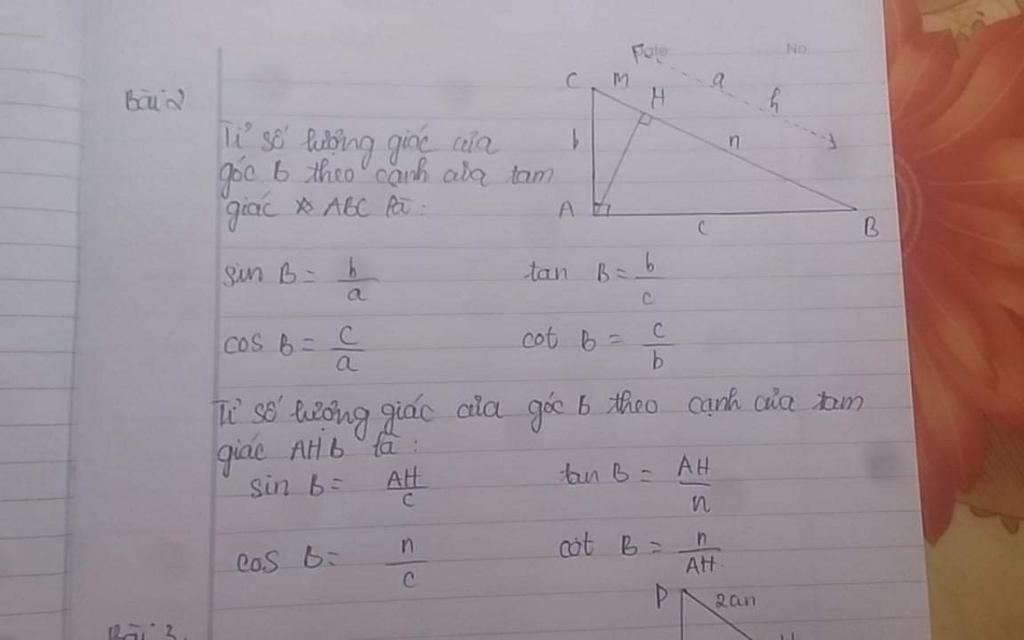 Date No
C M H a h
Bài 2
b n
Tỉ số lượng giác của
góc B theo cạnh của tam
giác ABC là:
A c B
sin B = b/a tan B = b/c
cos B = c/a cot B = c/b
Tỉ số lượng giác của góc B theo cạnh của tam
giác AHB là:
sin B = AH/c tan B = AH/n
cos B = n/c cot B = n/AH
P 2cm
Bài 3.